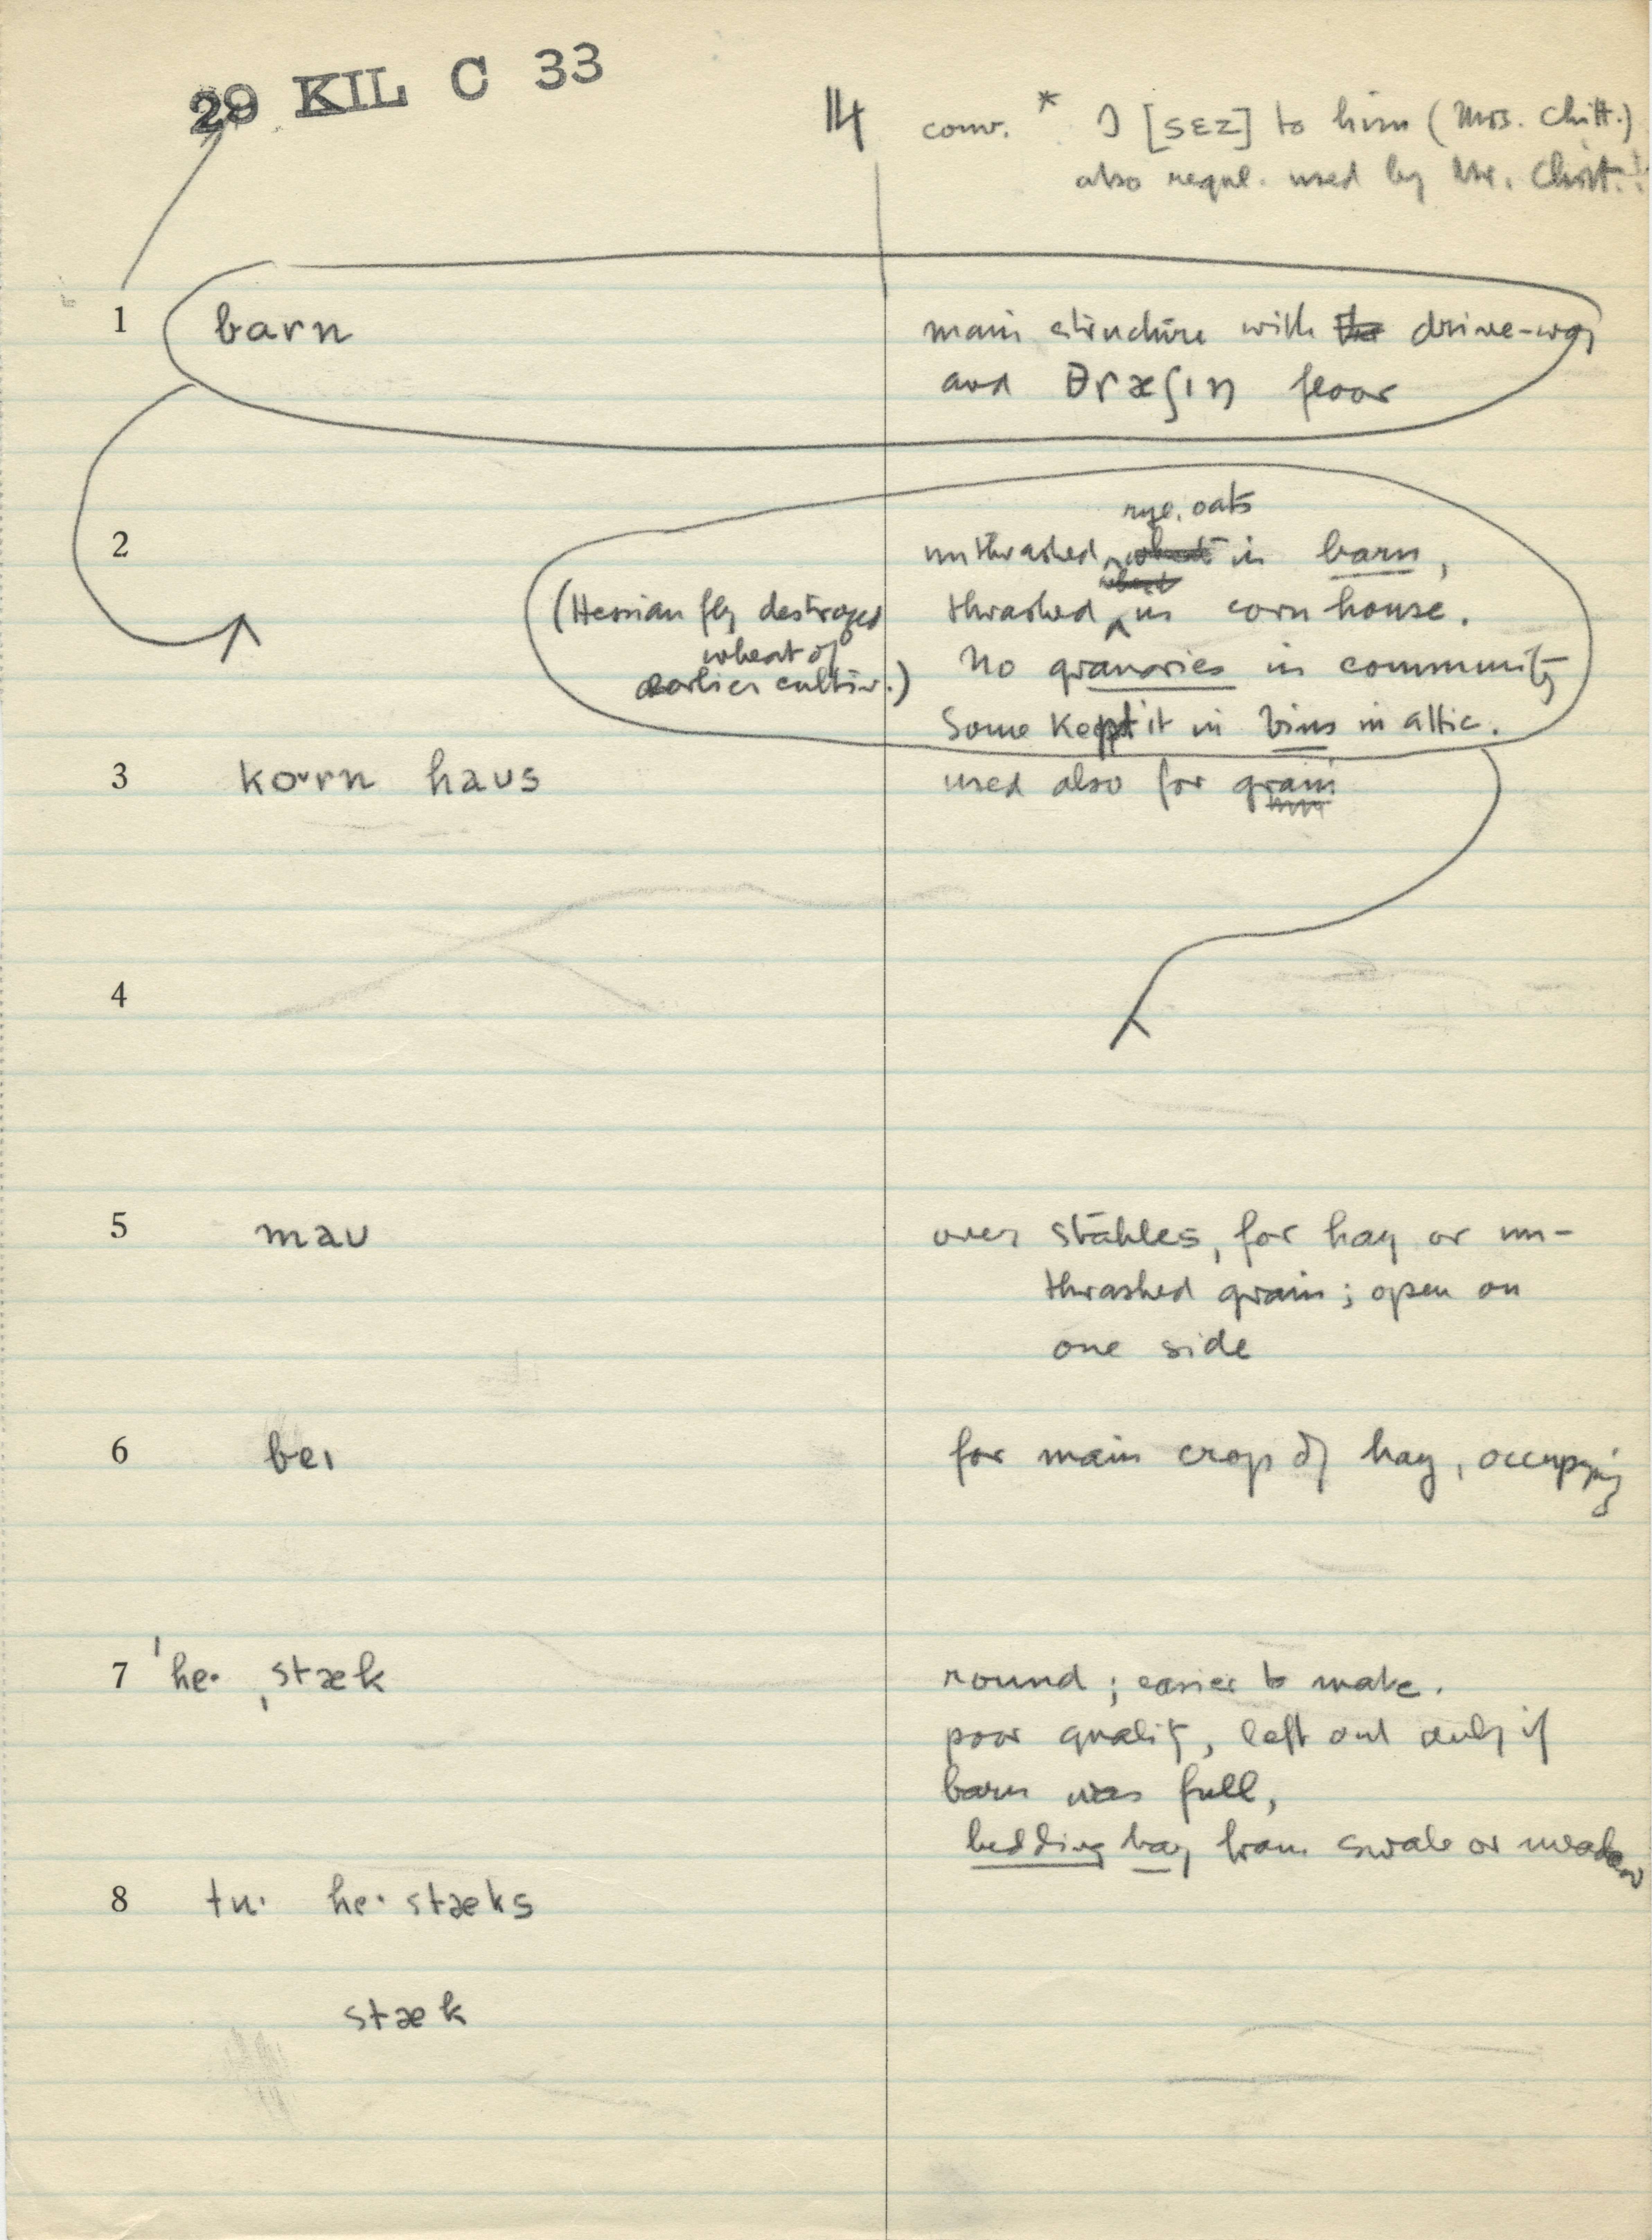 29 KIL C 33
14 conv. * I [sɛz] to him (Mrs. Chitt.)
also regul. used by Mr. Chitt.!
1 barn main structure with the drive-way
and θræʃɪŋ floor
rye, oats
2 unthrashed wheat in barn,
wheat
(Hessian fly destroyed thrashed in corn house.
wheat of No granaries in community
earlier cultiv.) Some kept it in bins in attic.
3 ko·rn haus used also for grain
4
5 mau over stables, for hay or un-
thrashed grain; open on
one side
6 beɪ for main crop of hay, occupying
7 ˈhe· ˌstæk round; easier to make.
poor quality, left out only if
barn was full,
bedding hay from swale or meadow
8 tu· he· stæks
stæk